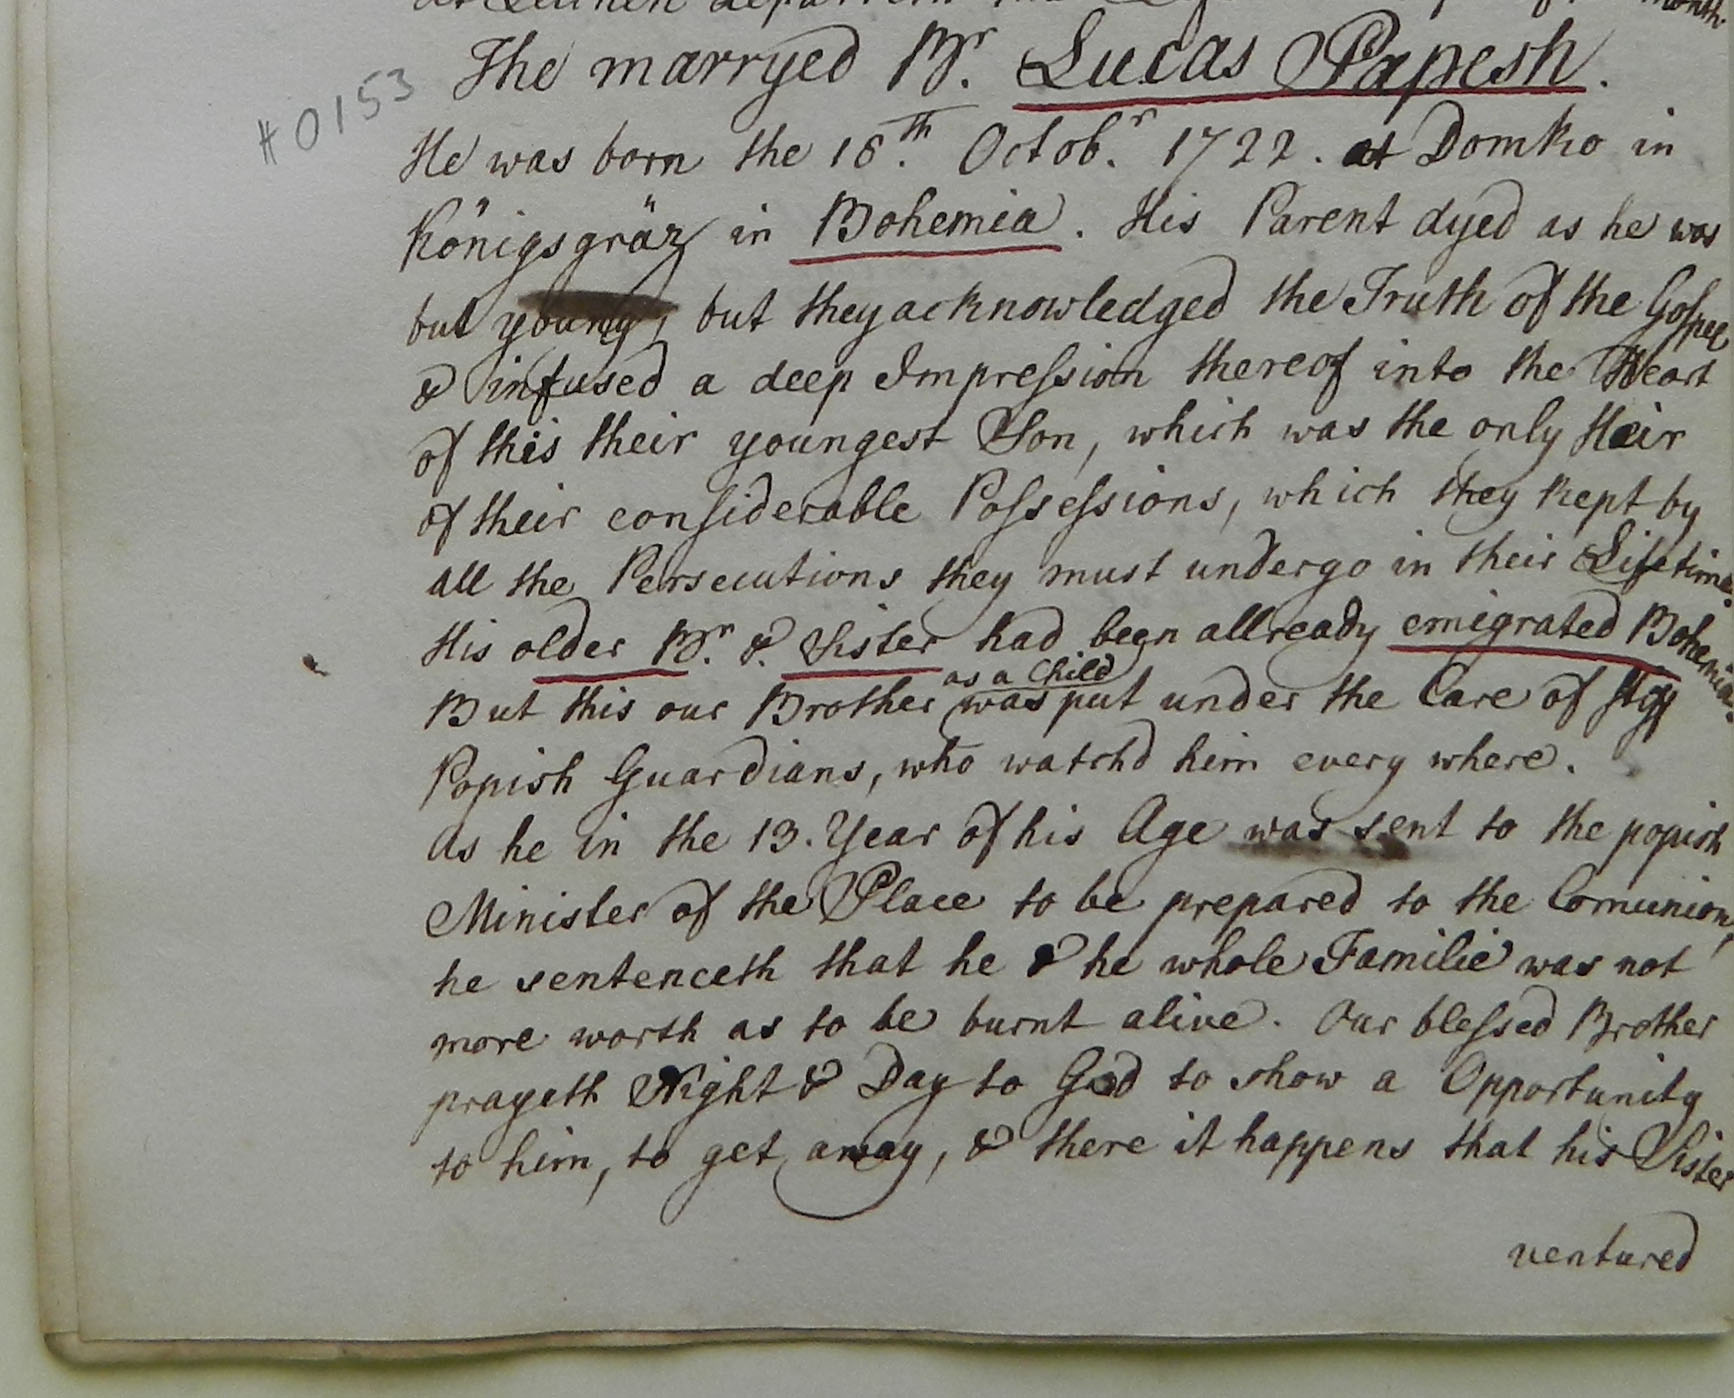 month
The marryed Br. Lucas Papesh.
#0153
He was born the 18th. Octobr. 1722. at Domko in
Königsgräz in Bohemia. His Parent dyed as he was
but young, but they acknowledged the Truth of the Gospel
& infused a deep Impression thereof into the Heart
of this their youngest Son, which was the only Heir
of their considerable Possessions, which they kept by
all the Persecutions they must undergo in their Lifetime.
His older Br. & Sister had been allready emigrated Bohemia.
as a Child
But this our Brother was put under the Care of
Popish Guardians, who watchd him every where.
As he in the 13. Year of his Age was sent to the popish
Minister of the Place to be prepared to the Comunion,
he sentenceth that he & he whole Familie was not
more worth as to be burnt alive. Our blessed Brother
prayeth Night & Day to God to show a Opportunity
to him, to get away, & there it happens that his Sister
ventured